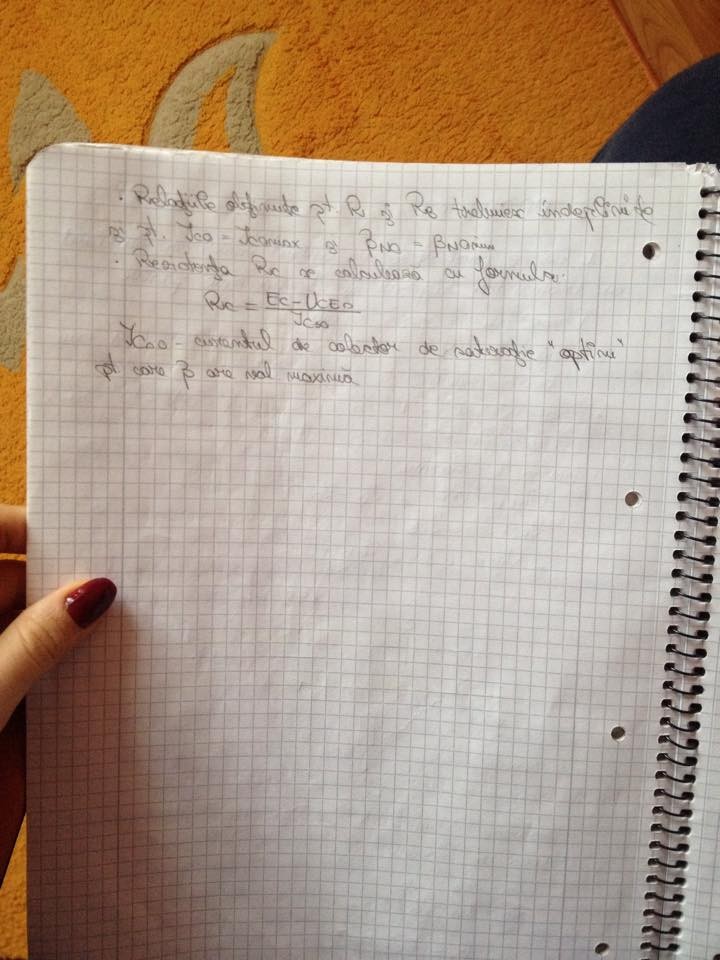 · Relațiile obținute pt. R și RB trebuiesc îndeplinite
și pt. Ico = Icomax și βNO = βNOmin
· Rezistența Rc se calculează cu formula:
Rc = Ec - UCEo / Ico0
Ico0 - curentul de colector de saturație "optim"
pt care β are val maximă